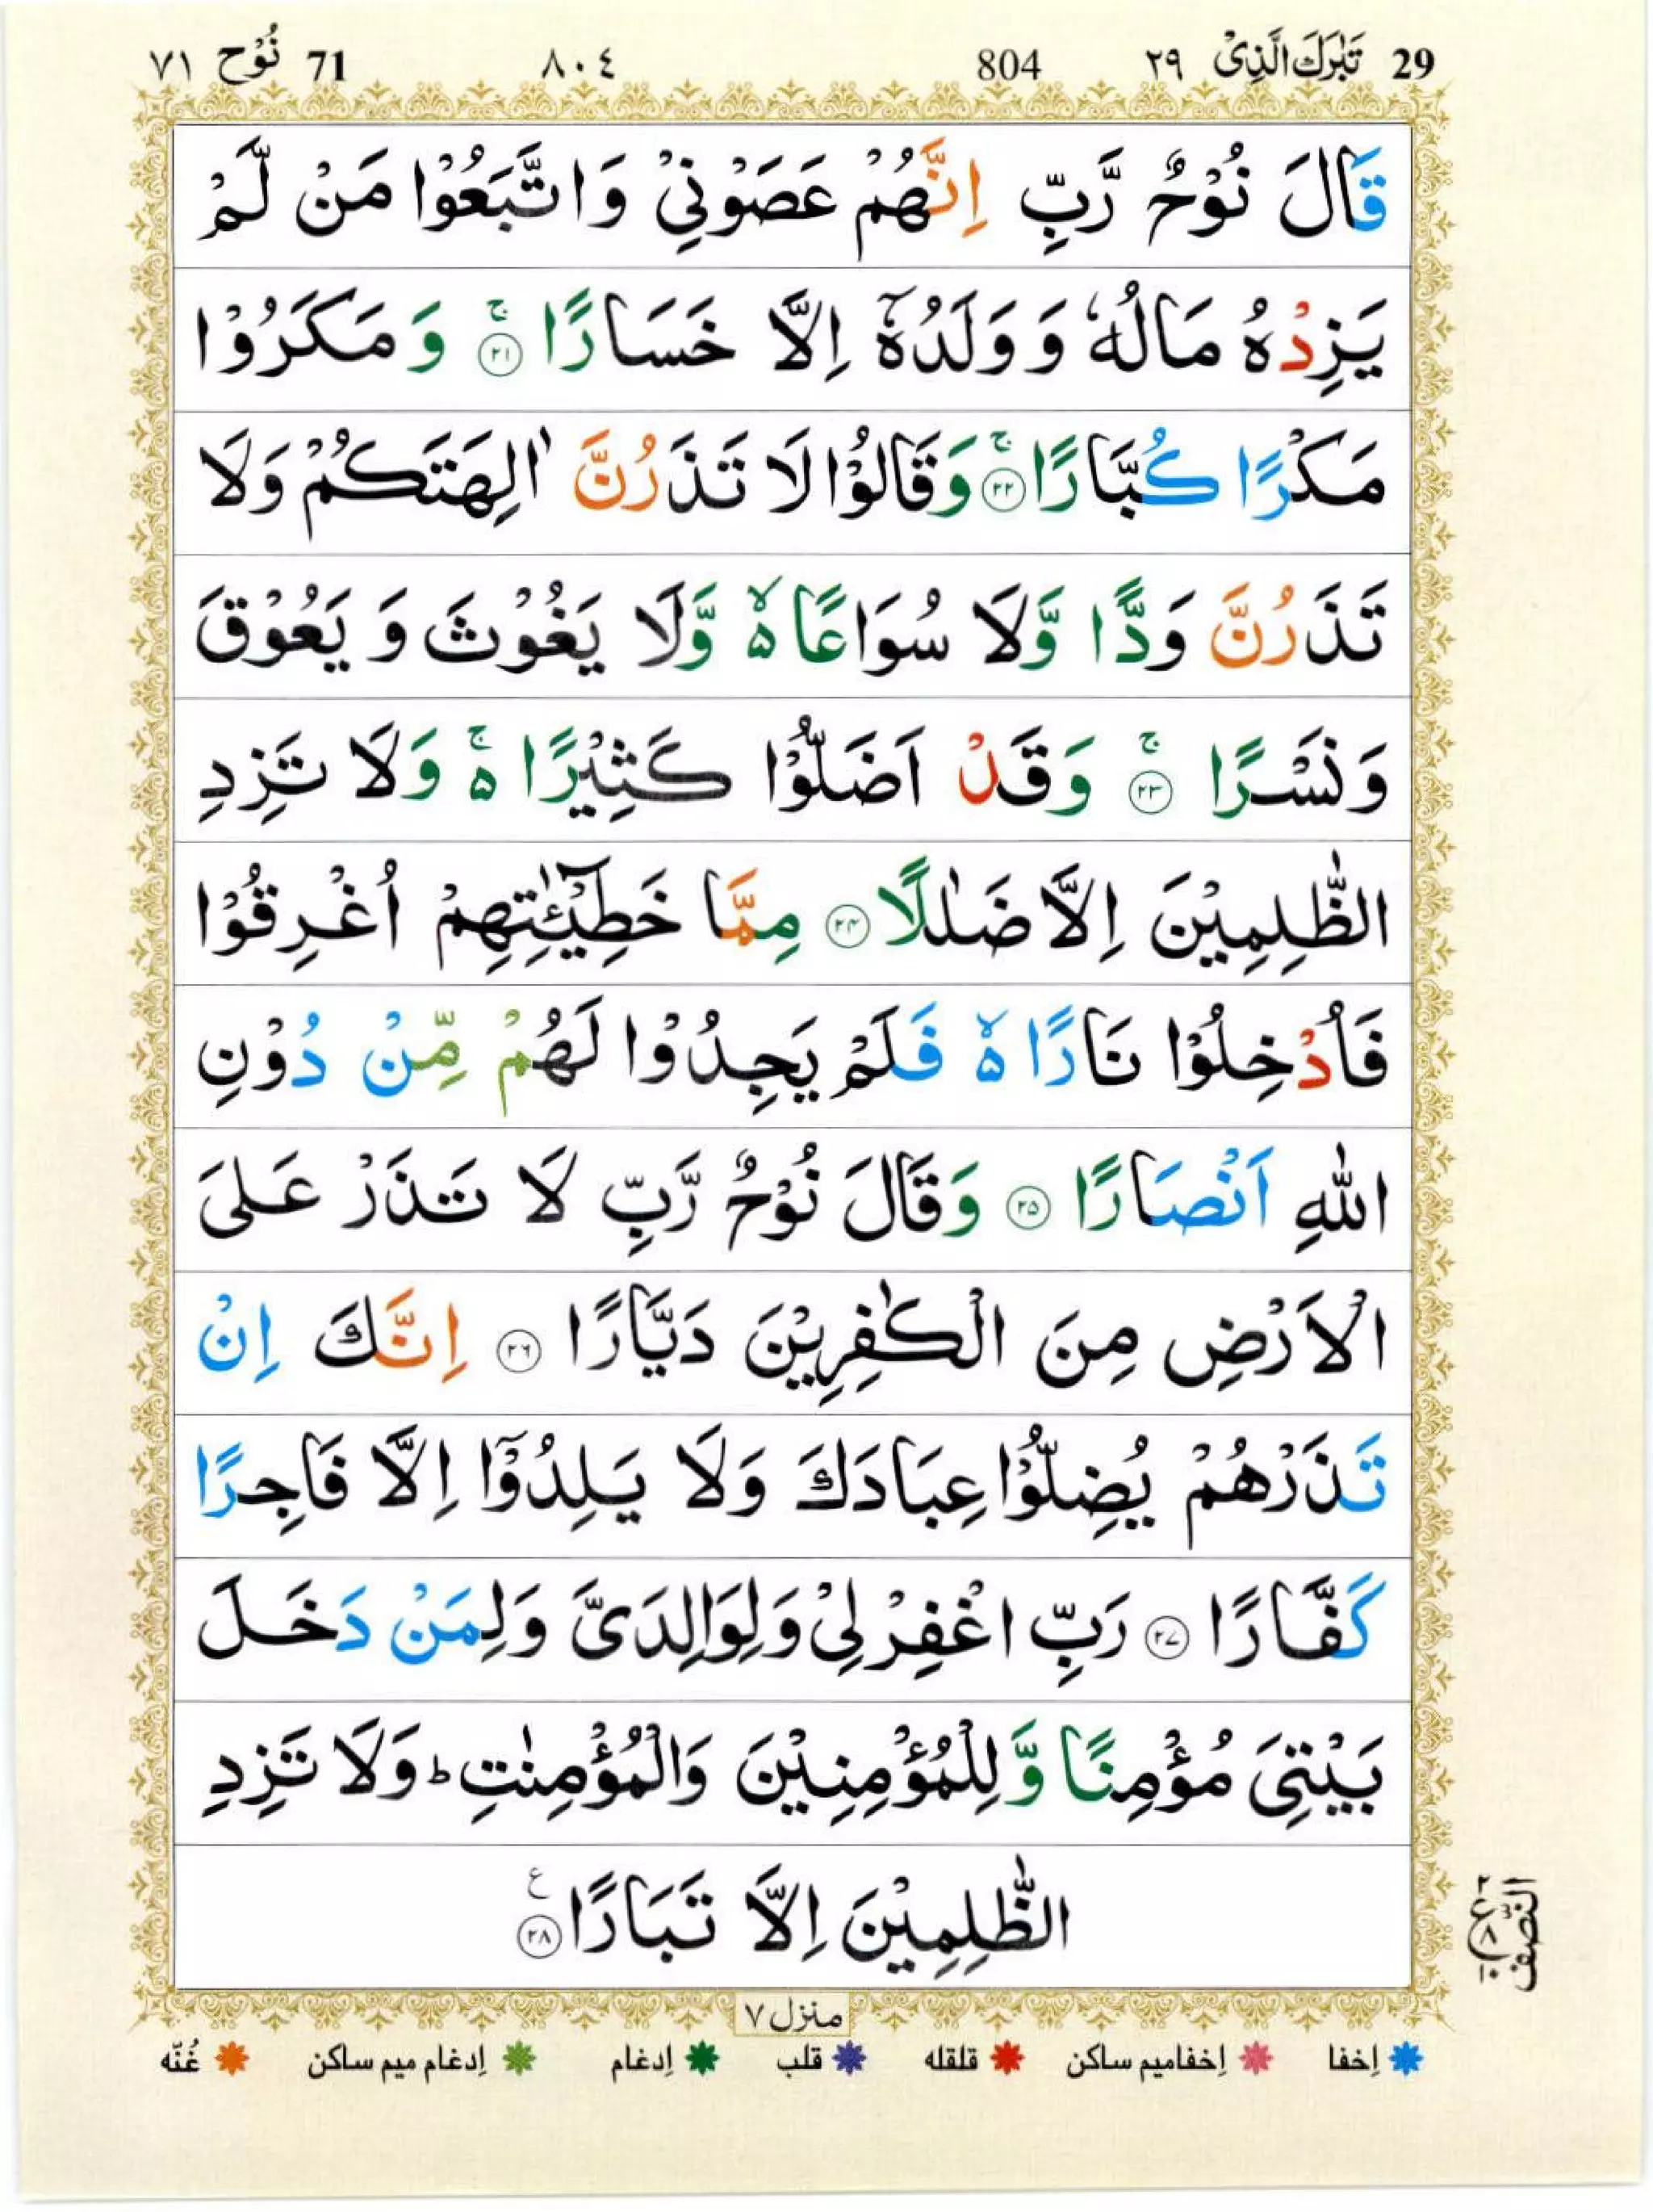 29 تَبٰرَكَ الَّذِیْ ٢٩ 804 ٨٠٤ 71 نُوْح ٧١
قَالَ نُوْحٌ رَّبِّ اِنَّهُمْ عَصَوْنِیْ وَاتَّبَعُوْا مَنْ لَّمْ
یَزِدْهُ مَالُهٗ وَوَلَدُهٗۤ اِلَّا خَسَارًا ۚ‏﴿۲۱﴾ وَمَكَرُوْا
مَكْرًا كُبَّارًا ۚ‏﴿۲۲﴾ وَقَالُوْا لَا تَذَرُنَّ اٰلِهَتَكُمْ وَلَا
تَذَرُنَّ وَدًّا وَّلَا سُوَاعًا ۙ۬ وَّلَا یَغُوْثَ وَیَعُوْقَ
وَنَسْرًا ۚ‏﴿۲۳﴾ وَقَدْ اَضَلُّوْا كَثِیْرًا ۚ۬ وَلَا تَزِدِ
الظّٰلِمِیْنَ اِلَّا ضَلٰلًا ﴿۲۴﴾ مِمَّا خَطِیْٓــٰٔتِهِمْ اُغْرِقُوْا
فَاُدْخِلُوْا نَارًا ۙ۬ فَلَمْ یَجِدُوْا لَهُمْ مِّنْ دُوْنِ
اللّٰهِ اَنْصَارًا ﴿۲۵﴾ وَقَالَ نُوْحٌ رَّبِّ لَا تَذَرْ عَلَی
الْاَرْضِ مِنَ الْكٰفِرِیْنَ دَیَّارًا ﴿۲۶﴾ اِنَّكَ اِنْ
تَذَرْهُمْ یُضِلُّوْا عِبَادَكَ وَلَا یَلِدُوْۤا اِلَّا فَاجِرًا
كَفَّارًا ﴿۲۷﴾ رَبِّ اغْفِرْ لِیْ وَلِوَالِدَیَّ وَلِمَنْ دَخَلَ
بَیْتِیَ مُؤْمِنًا وَّلِلْمُؤْمِنِیْنَ وَالْمُؤْمِنٰتِ ؕ وَلَا تَزِدِ
الظّٰلِمِیْنَ اِلَّا تَبَارًا ﴿۲۸﴾ ع
النِّصف
منزل ٧
اِخفا اِخفامیم ساكن قلقله قلب اِدغام اِدغام میم ساكن غُنّه